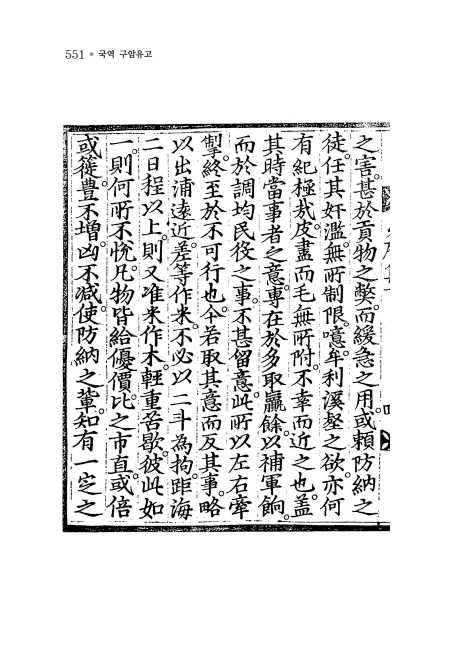 551 ● 국역 구암유고
之害。甚於貢物之弊。而緩急之用。或賴防納之
徒。任其奸濫。無所制限。噫。牟利溪壑之欲。亦何
有紀極哉。皮盡而毛無所附。不幸而近之也。盖
其時當事者之意。專在於多取贏餘。以補軍餉。
而於調均民役之事。不甚留意。此所以左右牽
掣。終至於不可行也。今若取其意而反其事。略
以出浦遠近。差等作米。不必以二斗為拘。距海
二日程以上。則又准米作木。輕重苦歇。彼此如
一。則何所不悅。凡物皆給優價。比之市直。或倍
或蓰。豊不增。凶不减。使防納之輩。知有一定之